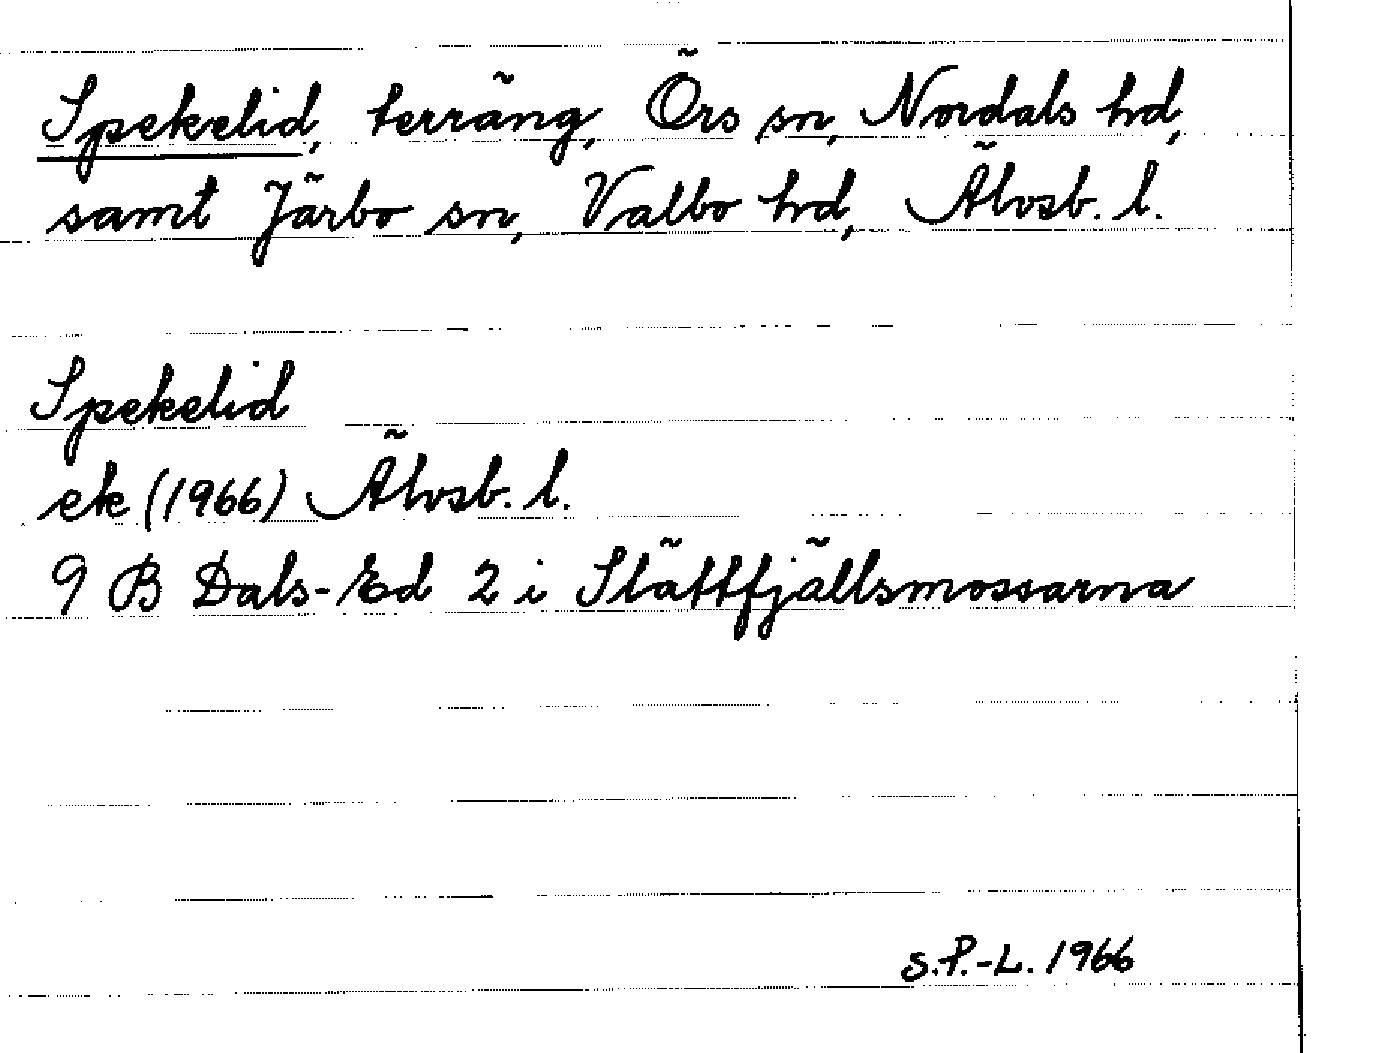 Spekelid, terräng, Örs sn, Nordals hd,
samt Järbo sn, Valbo hd, Älvsb. l.
Spekelid
ek (1966) Älvsb. l.
9 B Dals-Ed 2 i Slättfjällsmossarna
S.P.-L. 1966